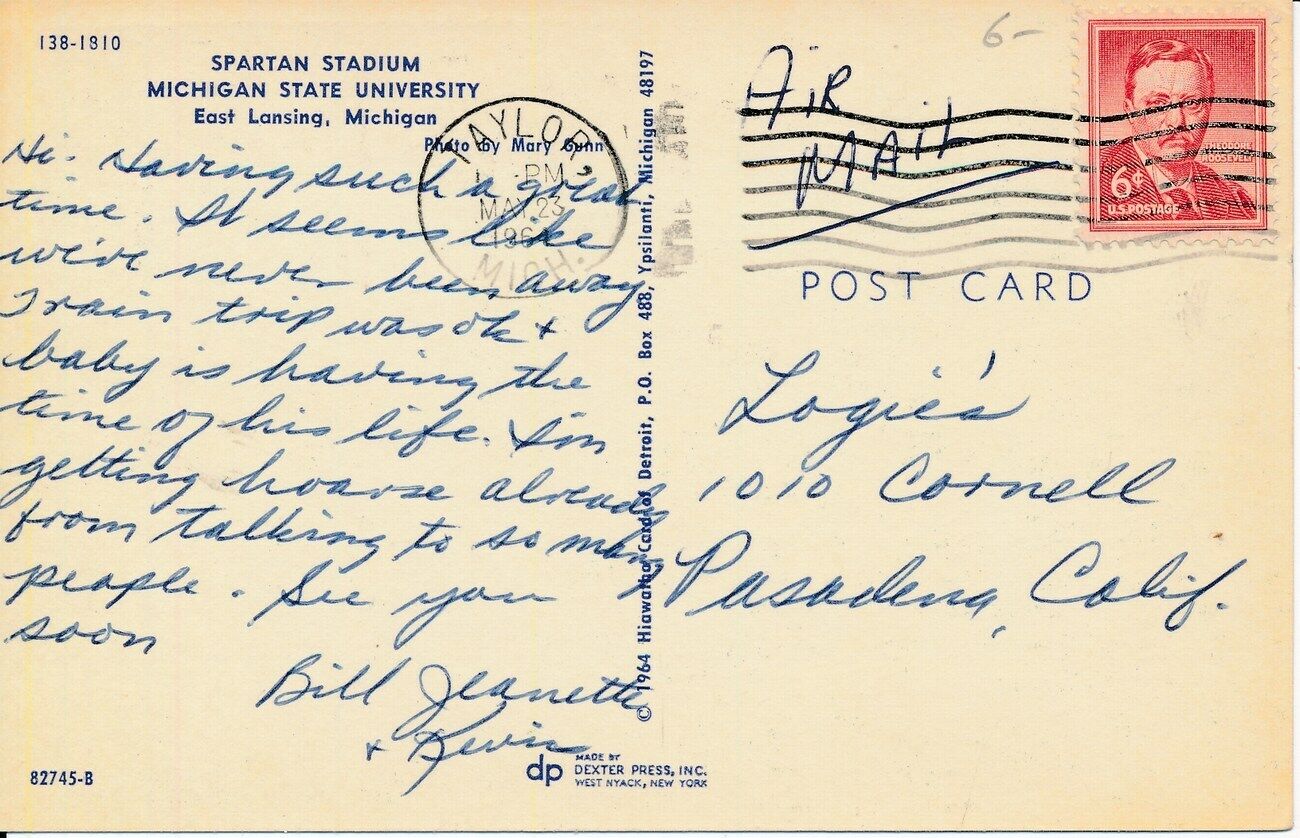 138-1810
SPARTAN STADIUM
MICHIGAN STATE UNIVERSITY
East Lansing, Michigan
Photo by Mary Gunn
Hi - Having such a great
time. It seems like
we've never been away
Train trip was ok +
baby is having the
time of his life. I'm
getting hoarse already
from talking to so many
people. See you
soon
Bill Jeanette
+ Kevin
82745-B
TAYLOR,
PM
MAY 23
MICH.
© 1964 Hiawatha Card of Detroit, P.O. Box 488, Ypsilanti, Michigan 48197
dp
MADE BY
DEXTER PRESS, INC.
WEST NYACK, NEW YORK
6-
AIR
MAIL
THEODORE
ROOSEVELT
6¢
U.S. POSTAGE
POST CARD
Logie's
1010 Cornell
Pasadena, Calif.